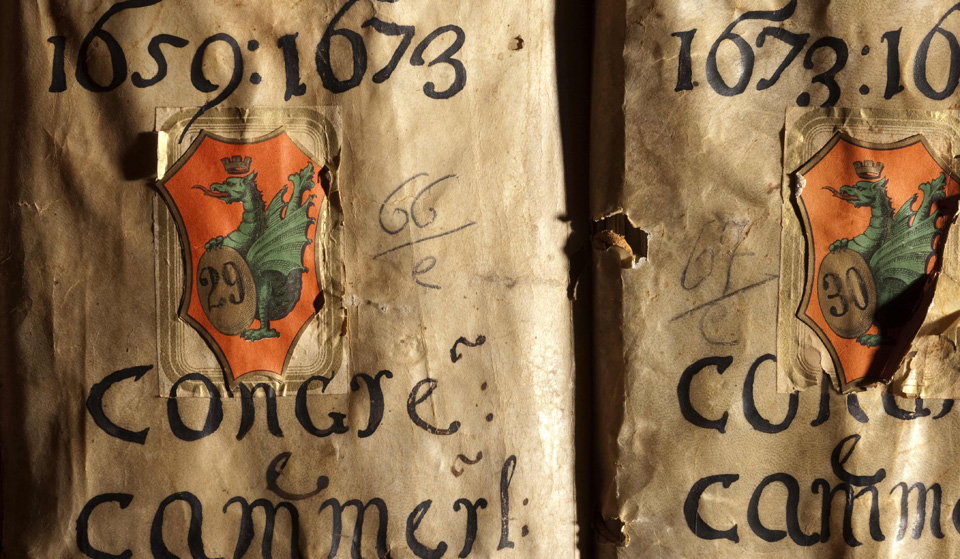 1659:1673
29
66
e
Congre~:
cam̃merl̃:
1673:16
30
67
e
Con
cam̃me